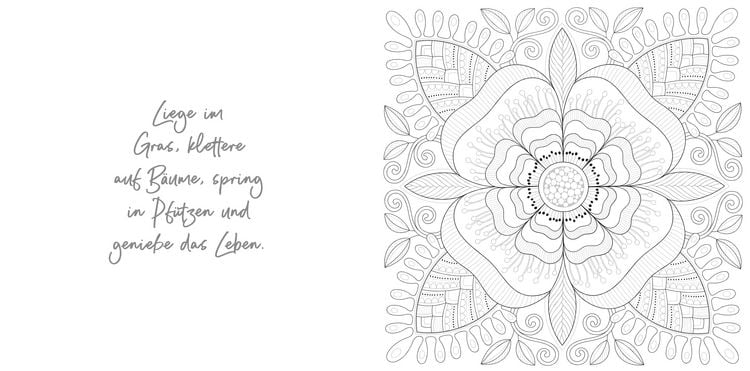 Liege im
Gras, klettere
auf Bäume, spring
in Pfützen und
genieße das Leben.